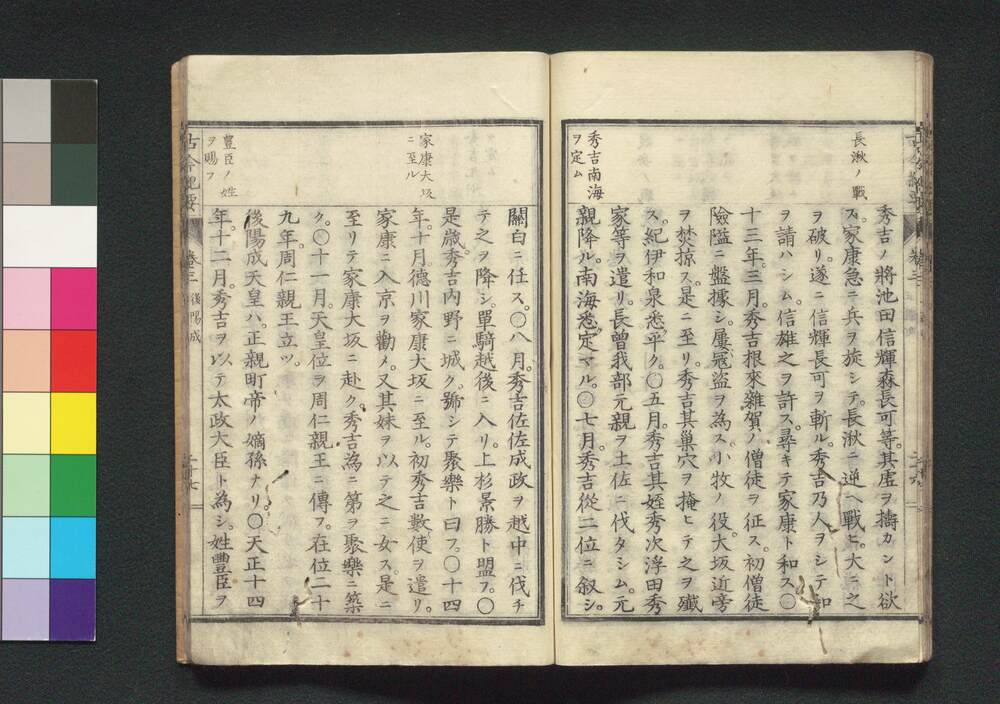 長湫ノ戰
秀吉ノ將池田信輝森長可等。其虛ヲ擣カント欲
ス。家康急ニ兵ヲ旋シテ。長湫ニ逆ヘ戰ヒ。大ニ之
ヲ破リ。遂ニ信輝長可ヲ斬ル。秀吉乃人ヲシテ和
ヲ請ハシム。信雄之ヲ許ス。尋キテ家康ト和ス。〇
十三年。三月。秀吉根來雜賀ノ僧徒ヲ征ス。初僧徒
險隘ニ盤據シ。屢寇盜ヲ為ス。小牧ノ役。大坂近旁
ヲ焚掠ス。是ニ至リ。秀吉其巢穴ヲ掩ヒテ之ヲ殲
ス。紀伊和泉悉平ク。〇五月。秀吉其姪秀次浮田秀
家等ヲ遣リ。長曾我部元親ヲ土佐ニ伐タシム。元
親降ル。南海悉定マル。〇七月。秀吉從二位ニ叙シ。
秀吉南海
ヲ定ム
關白ニ任ス。〇八月。秀吉佐佐成政ヲ越中ニ伐チ
テ之ヲ降シ。單騎越後ニ入リ。上杉景勝ト盟フ。〇
是歲。秀吉內野ニ城ク。號シテ聚樂ト曰フ。〇十四
年。十月。德川家康大坂ニ至ル。初秀吉數使ヲ遣リ。
家康ニ入京ヲ勸メ。又其妹ヲ以テ之ニ女ス。是ニ
至リテ家康大坂ニ赴ク。秀吉為ニ第ヲ聚樂ニ築
ク。〇十一月。天皇位ヲ周仁親王ニ傳フ。在位二十
九年。周仁親王立ツ。
後陽成天皇ハ。正親町帝ノ嫡孫ナリ。〇天正十四
年。十二月。秀吉ヲ以テ太政大臣ト為シ。姓豐臣ヲ
家康大坂
ニ至ル
豐臣ノ姓
ヲ賜フ
古今紀要
卷三
後陽成